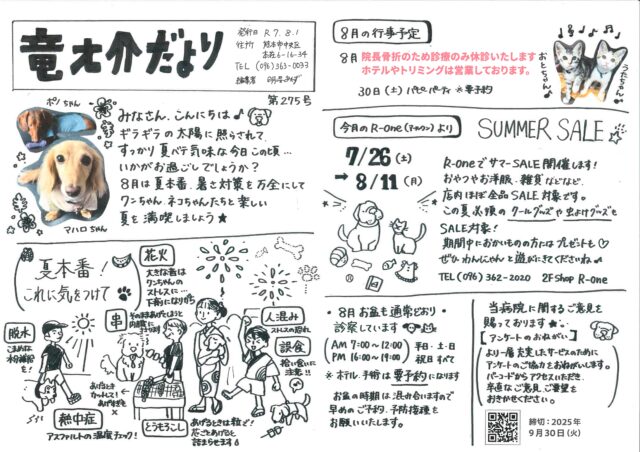 竜之介だより
発行日 R7.8.1
住所 熊本市中央区
本荘6-16-34
TEL (096)363-0033
編集者
第275号
ポンちゃん
マハロちゃん
みなさん、こんにちは♪
ギラギラの太陽に照らされて
すっかり夏バテ気味な今日この頃…
いかがお過ごしでしょうか？
8月は夏本番、暑さ対策を万全にして
ワンちゃん、ネコちゃんたちと楽しい
夏を満喫しましょう★
夏本番！
これに気をつけて
花火
大きな音は
ワンちゃんの
ストレスに…
下痢になり
脱水
こまめな
水分補給を！
串
そのままあげてしまうと
カットして！
熱中症
アスファルトの温度チェック！
とうもろこし
あげるときは粒で！
花ごとあげると
詰まらせます
人混み
ストレスの恐れ
誤食
拾い食いに
注意!!
8月の行事予定
8月 院長骨折のため診療のみ休診いたします
ホテルやトリミングは営業しております。
30日(土) パピーパーティ ※要予約
おとちゃん
うたちゃん
今月のR-one(アールワン)より
SUMMER SALE
7/26(土)
→8/11(月)
R-oneでサマーSALE開催します！
おやつやお洋服、雑貨などなど、
店内ほぼ全品SALE対象です。
この夏必須のクールグッズや虫よけグッズも
SALE対象！
期間中におかいものの方にはプレゼントも♡
ぜひ わんにゃんと遊びにきてくださいね
TEL(096)362-2020 2F Shop R-one
・8月お盆も通常どおり
診察しています
AM 7:00〜12:00 平日・土・日
PM 16:00〜19:00 祝日すべて
※ホテル、手術は要予約になります
お盆の時期は混み合いますので
早めのご予約、予防指種を
お願いいたします。
当病院に関するご意見を
賜っております★
【アンケートのおねがい】
より一層充実したサービスのために
アンケートのご協力をおねがいします。
バーコードからアクセスいただき、
率直なご意見、ご要望を
おきかせください。
締切：2025年
9月30日(火)